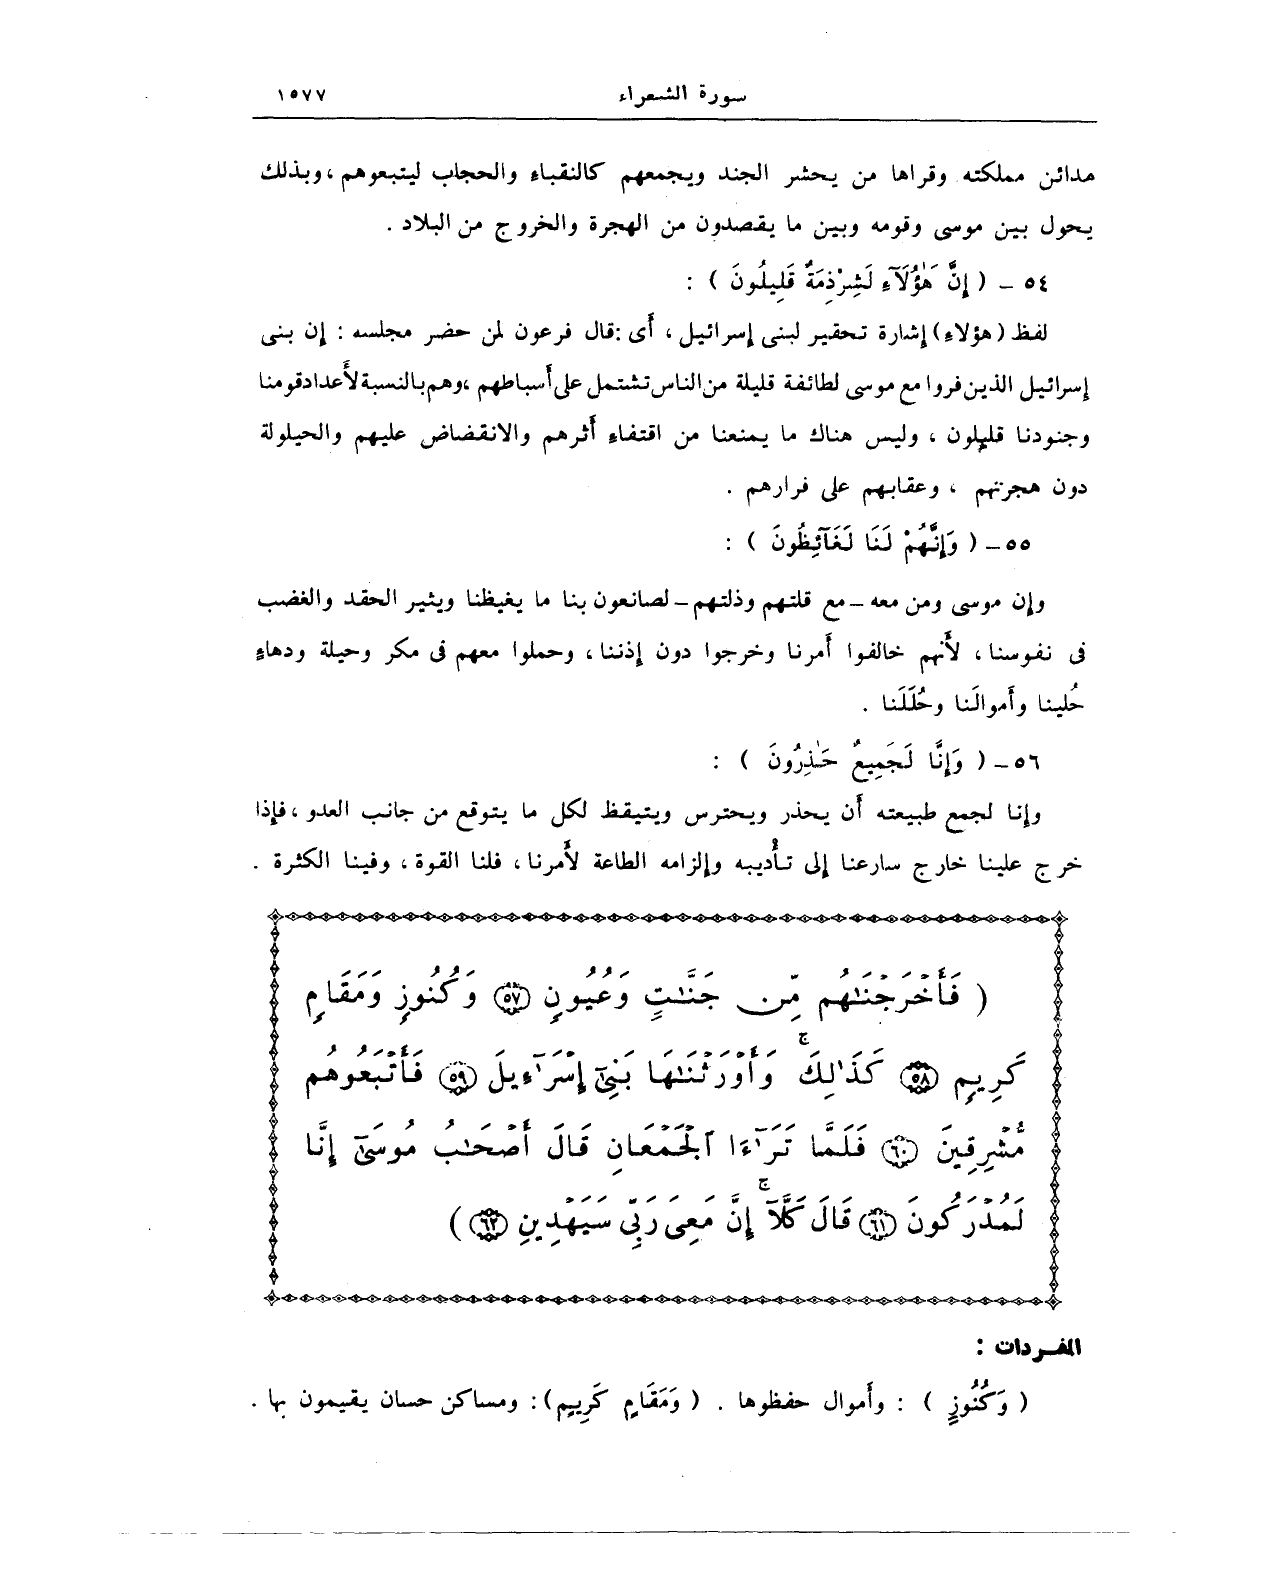 سورة الشعراء ١٥٧٧
مدائن مملكته وقراها من يحشر الجند ويجمعهم كالنقباء والحجاب ليتبعوهم ، وبذلك
يحول بين موسى وقومه وبين ما يقصدون من الهجرة والخروج من البلاد .
٥٤ ـ ( إِنَّ هَٰٓؤُلَآءِ لَشِرْذِمَةٌ قَلِيلُونَ ) :
لفظ (هؤلاء) إشارة تحقير لبنى إسرائيل ، أى : قال فرعون لمن حضر مجلسه : إن بنى
إسرائيل الذين فروا مع موسى لطائفة قليلة من الناس تشتمل على أسباطهم ، وهم بالنسبة لأعداد قومنا
وجنودنا قليلون ، وليس هناك ما يمنعنا من اقتفاء أثرهم والانقضاض عليهم والحيلولة
دون هجرتهم ، وعقابهم على فرارهم .
٥٥ ـ ( وَإِنَّهُمْ لَنَا لَغَآئِظُونَ ) :
وإن موسى ومن معه ـ مع قلتهم وذلتهم ـ لصانعون بنا ما يغيظنا ويثير الحقد والغضب
فى نفوسنا ، لأنهم خالفوا أمرنا وخرجوا دون إذننا ، وحملوا معهم فى مكر وحيلة ودهاءٍ
حُلينا وأموالَنا وحُلَلَنا .
٥٦ ـ ( وَإِنَّا لَجَمِيعٌ حَٰذِرُونَ ) :
وإنا لجمع طبيعته أن يحذر ويحترس ويتيقظ لكل ما يتوقع من جانب العدو ، فإذا
خرج علينا خارج سارعنا إلى تأديبه وإلزامه الطاعة لأمرنا ، فلنا القوة ، وفينا الكثرة .
( فَأَخْرَجْنَٰهُم مِّن جَنَّٰتٍ وَعُيُونٍ ٥٧ وَكُنُوزٍ وَمَقَامٍ
كَرِيمٍ ٥٨ كَذَٰلِكَۚ وَأَوْرَثْنَٰهَا بَنِىٓ إِسْرَٰٓءِيلَ ٥٩ فَأَتْبَعُوهُم
مُّشْرِقِينَ ٦٠ فَلَمَّا تَرَٰٓءَا ٱلْجَمْعَانِ قَالَ أَصْحَٰبُ مُوسَىٰٓ إِنَّا
لَمُدْرَكُونَ ٦١ قَالَ كَلَّآۚ إِنَّ مَعِىَ رَبِّى سَيَهْدِينِ ٦٢ )
المفردات :
( وَكُنُوزٍ ) : وأموال حفظوها . ( وَمَقَامٍ كَرِيمٍ ) : ومساكن حسان يقيمون بها .